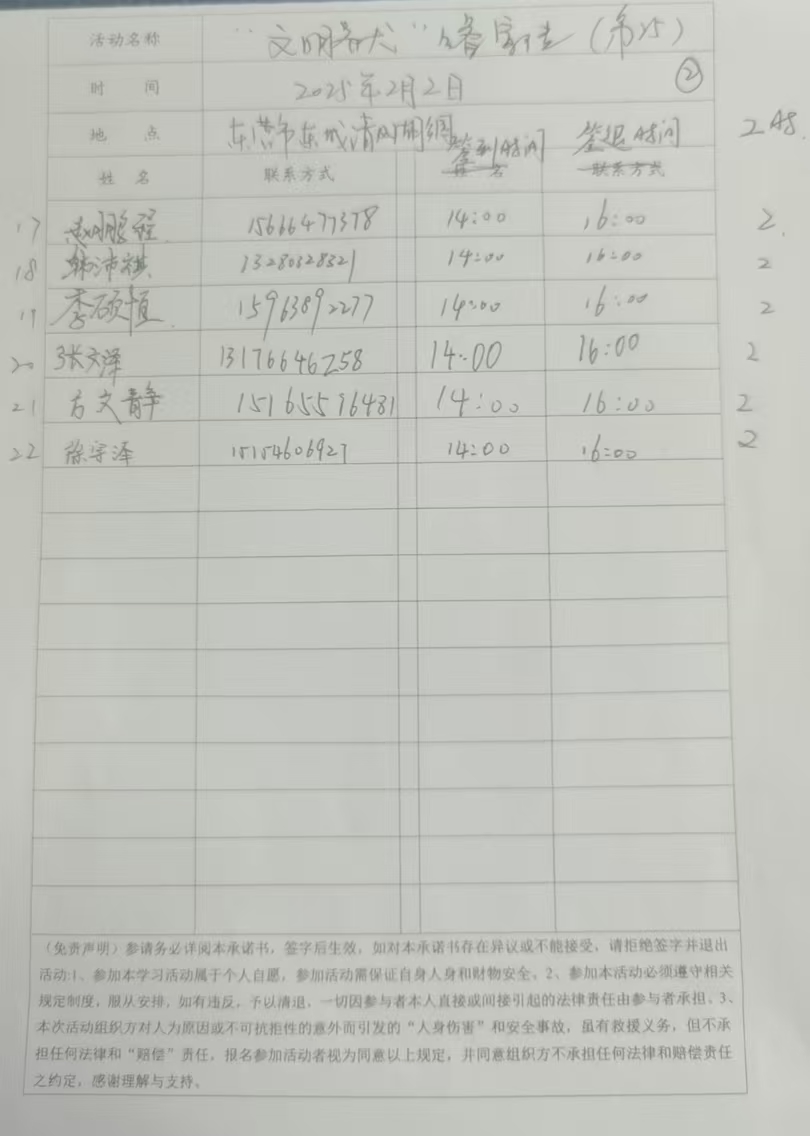 活动名称 “文明养犬” 宣传（第25）
时 间 2025年2月2日 ②
地 点 东营市东城清风湖 签到时间 签退时间 2时.
姓 名 联系方式 联系方式
17 鹏程 15666477378 14:00 16:00 2
18 韩沛祺 13280328321 14:00 16:00 2
19 李硕恒 15963892277 14:00 16:00 2
20 张文泽 13176646258 14:00 16:00 2
21 方文静 15165596481 14:00 16:00 2
22 徐宗泽 15154606927 14:00 16:00 2
（免责声明）参请务必详阅本承诺书，签字后生效，如对本承诺书存在异议或不能接受，请拒绝签字并退出
活动:1、参加本学习活动属于个人自愿，参加活动需保证自身人身和财物安全。2、参加本活动必须遵守相关
规定制度，服从安排，如有违反，予以清退，一切因参与者本人直接或间接引起的法律责任由参与者承担。3、
本次活动组织方对人为原因或不可抗拒性的意外而引发的“人身伤害”和安全事故，虽有救援义务，但不承
担任何法律和“赔偿”责任，报名参加活动者视为同意以上规定，并同意组织方不承担任何法律和赔偿责任
之约定，感谢理解与支持。